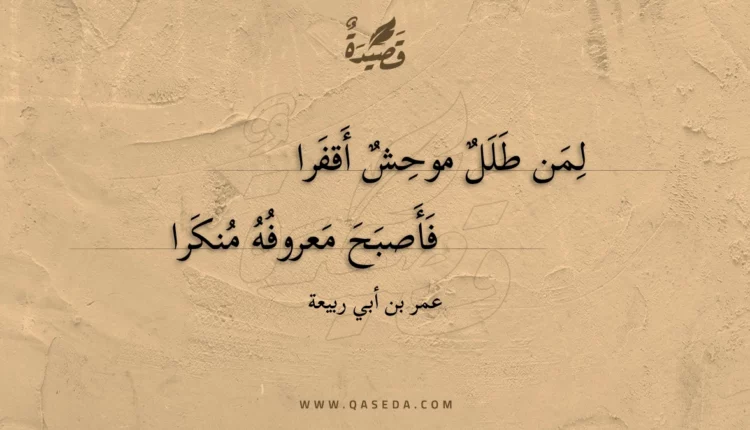 قَصِيدَةٌ
لِمَن طَلَلٌ موحِشٌ أَقفَرا
فَأَصبَحَ مَعروفُهُ مُنكَرا
عمر بن أبي ربيعة
WWW.QASEDA.COM